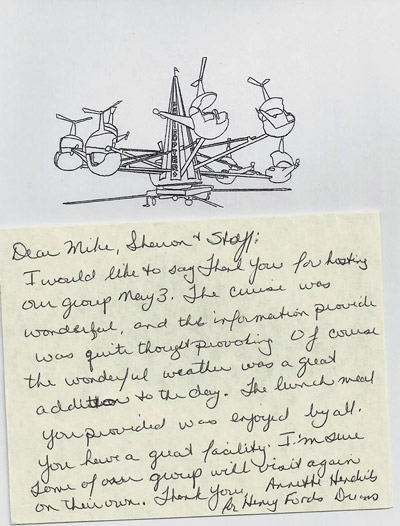 COPTERS
Dear Mike, Sharon & Staff:
I would like to say Thank You for hosting
our group May 3. The cruise was
wonderful, and the information provide
was quite thought provoking. Of course
the wonderful weather was a great
addition to the day. The lunch meal
you provided was enjoyed by all.
You have a great facility. I'm sure
some of our group will visit again
on their own. Thank you, Annette
for Henry Fords